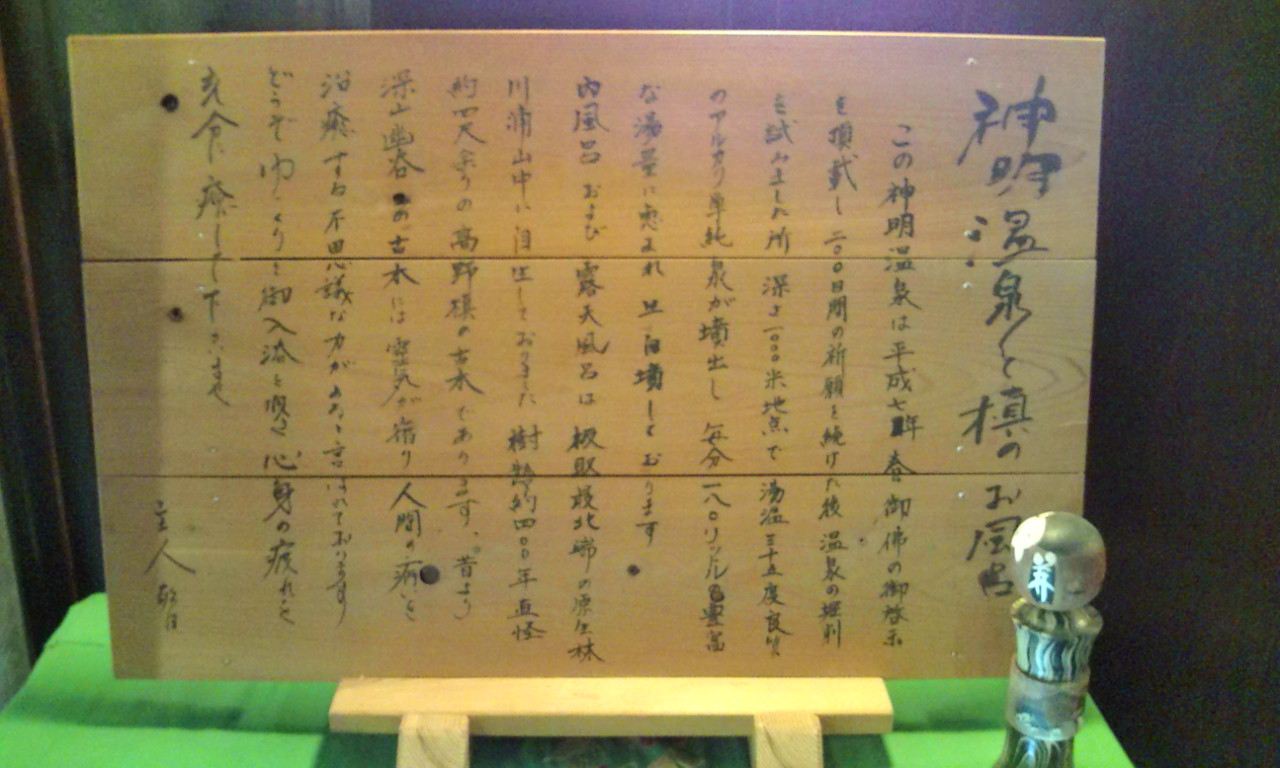 神明温泉と槙のお風呂
この神明温泉は平成七年春御佛の御啓示
を頂戴し二〇〇日間の祈願を続けた後温泉の掘削
を試みました所 深さ一〇〇〇米地点で 湯温三十五度良質
のアルカリ単純泉が墳出し 毎分一八〇リットルの豊富
な湯量に恵まれ 且 自墳しております
内風呂および露天風呂は 板取最北端の原生林
川浦山中に自生しておりました 樹齢約四〇〇年直径
約四尺余りの高野槙の古木であります。昔より
深山幽谷の古木には霊気が宿り 人間の病を
治癒する不思議な力があると言はれております
どうぞゆっくりと御入浴を 心身の疲れを
充分に療して下さいませ
主人